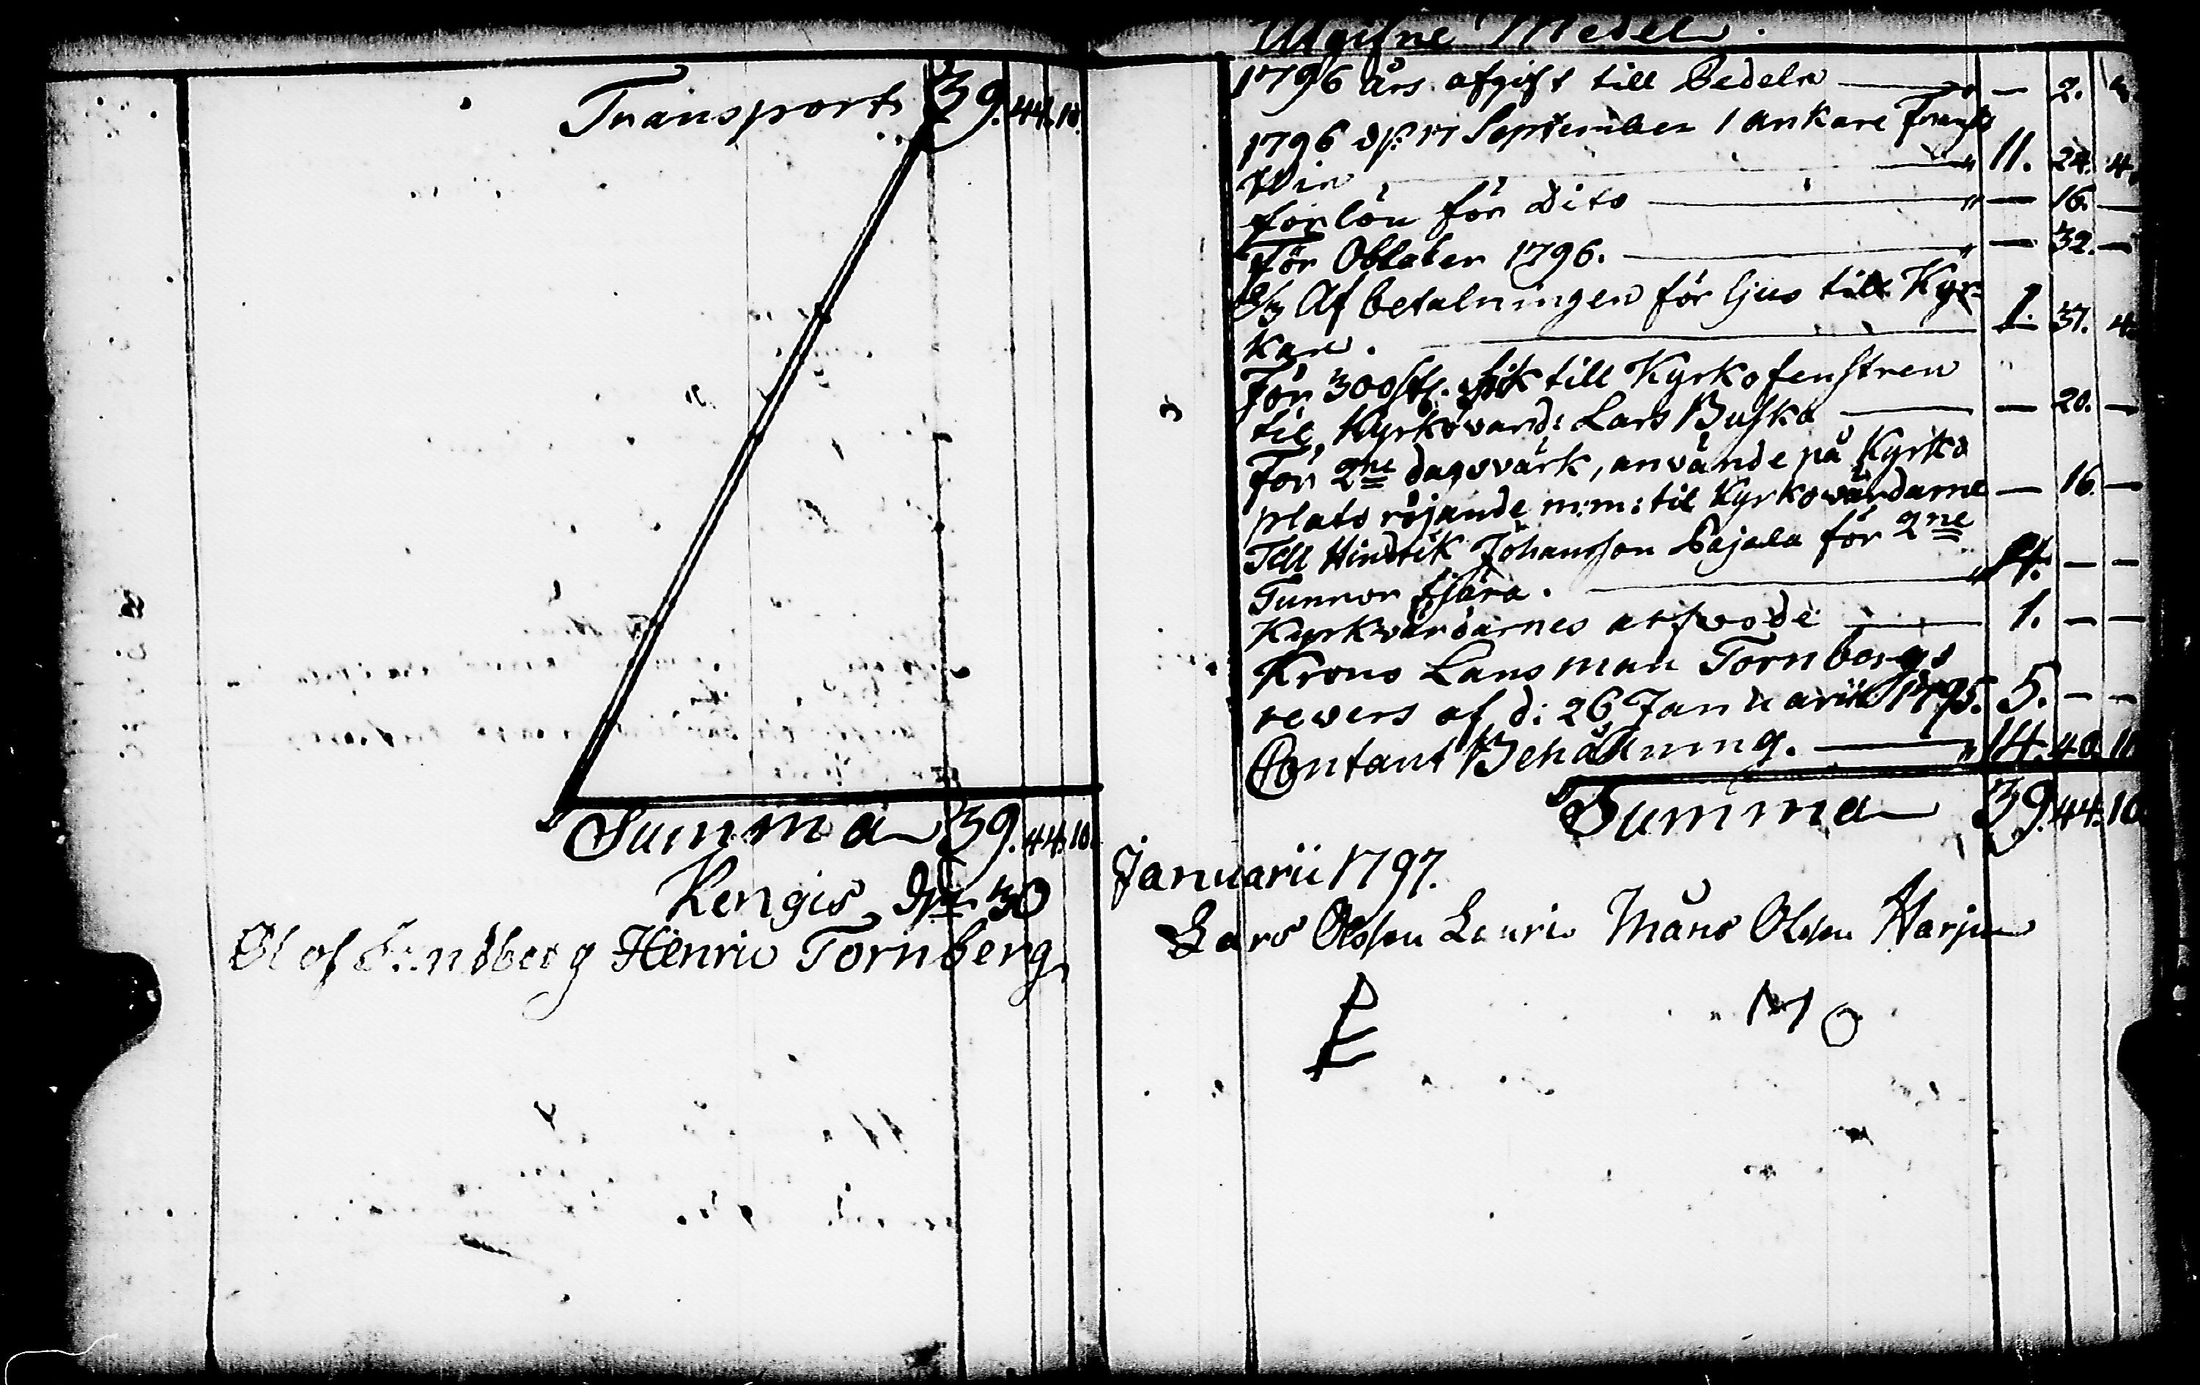 Transport 39. 44. 10.
Summa 39. 44. 10.
Kengis, 30
Olof Henric Tornberg
Utgifne Medel.
1796 års afgift till Bedeln — — 2.
1796 d. 17 September 1 ankare fransk
Win — 11. 24. 4.
forlön för dito — — 16. —
För Oblater 1796. — — 32. —
2/3 Af betalningen för ljus till Kyr-
kan. — 1. 37. 4.
För 300 st. till Kyrkofenstren
til Kyrkovärd: Lars Busko — — 20. —
För 2ne dagsvärk, använde på Kyrko
plats röjande m:m: til Kyrkovärdarne — 16. —
Till Hindrik Johansson Pajala för 2ne
Tunnor tjära. — 4. — —
Kyrkvärdarnes arfvode — 1. — —
Krono Länsman Tornbergs
revers af d: 26 Januarii 1795. 5. — —
Contant Behållning. — 14. 40. 10
Summa 39. 44. 10
Januarii 1797.
Lars Olsson Lauri Måns Olsson Harju
M O